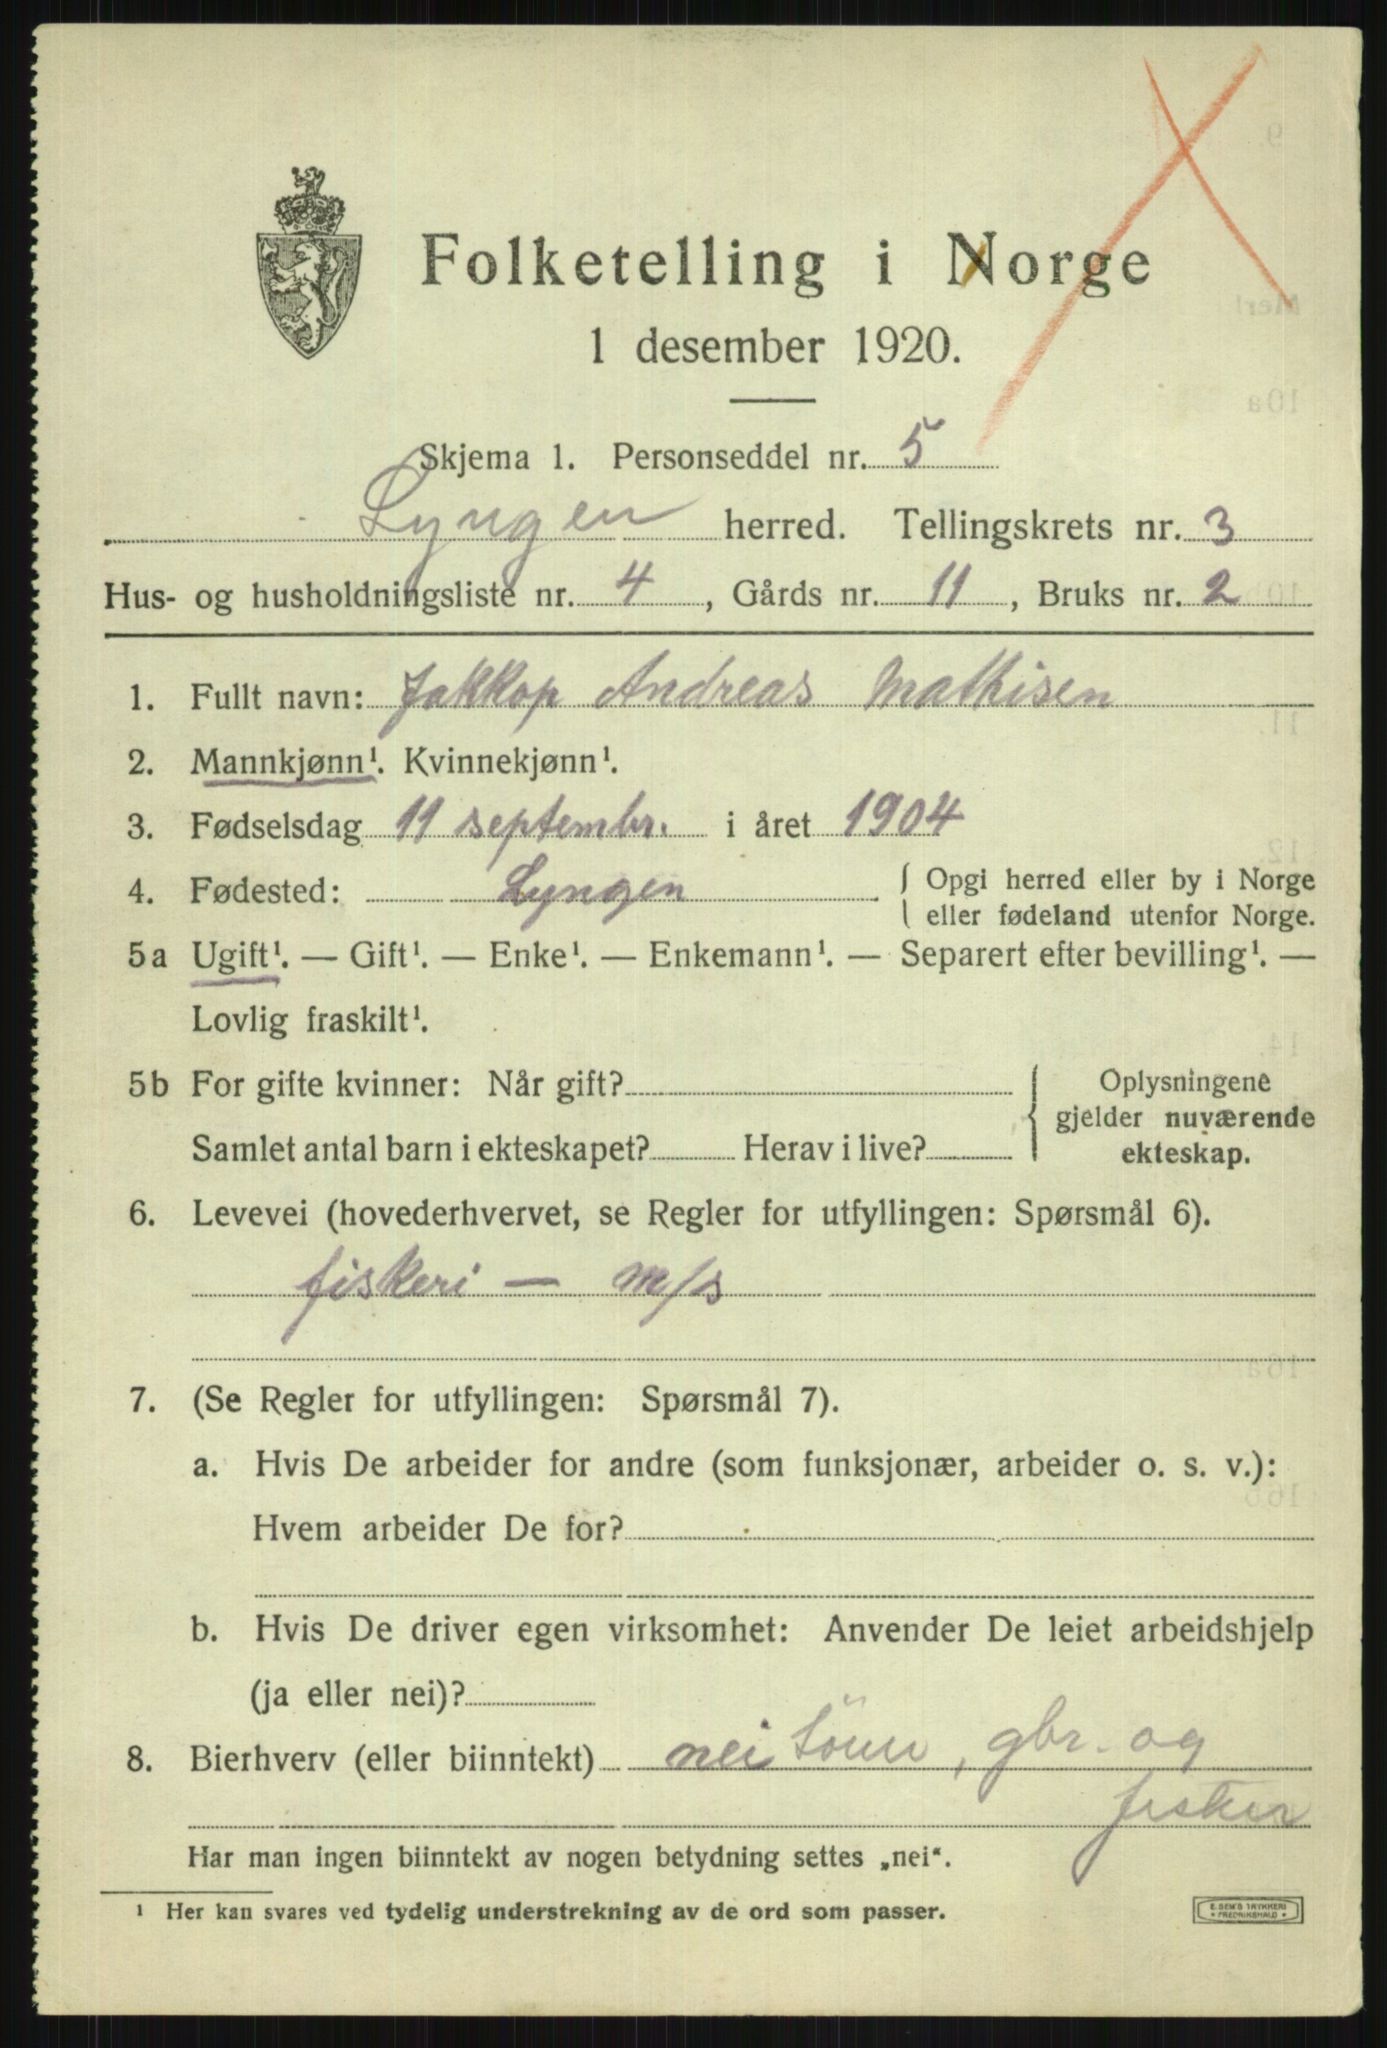 Folketelling i Norge
1 desember 1920.
Skjema 1. Personseddel nr. 5
Lyngen herred. Tellingskrets nr. 3
Hus- og husholdningsliste nr. 4, Gårds nr. 11, Bruks nr. 2
1. Fullt navn: Jakkop Andreas Mathisen
2. Mannkjønn¹. Kvinnekjønn¹.
3. Fødselsdag 11 septembr. i året 1904
4. Fødested: Lyngen { Opgi herred eller by i Norge
eller fødeland utenfor Norge.
5a Ugift¹. — Gift¹. — Enke¹. — Enkemann¹. — Separert efter bevilling¹. —
Lovlig fraskilt¹.
5b For gifte kvinner: Når gift? { Oplysningene
gjelder nuværende
Samlet antal barn i ekteskapet? Herav i live? ekteskap.
6. Levevei (hovederhvervet, se Regler for utfyllingen: Spørsmål 6).
fiskeri — m/s
7. (Se Regler for utfyllingen: Spørsmål 7).
a. Hvis De arbeider for andre (som funksjonær, arbeider o. s. v.):
Hvem arbeider De for?
b. Hvis De driver egen virksomhet: Anvender De leiet arbeidshjelp
(ja eller nei)?
8. Bierhverv (eller biinntekt) nei , gbr. og
fisker
Har man ingen biinntekt av nogen betydning settes „nei“.
¹ Her kan svares ved tydelig understrekning av de ord som passer.
E. SEM'S TRYKKERI
* FREDRIKSHALD *